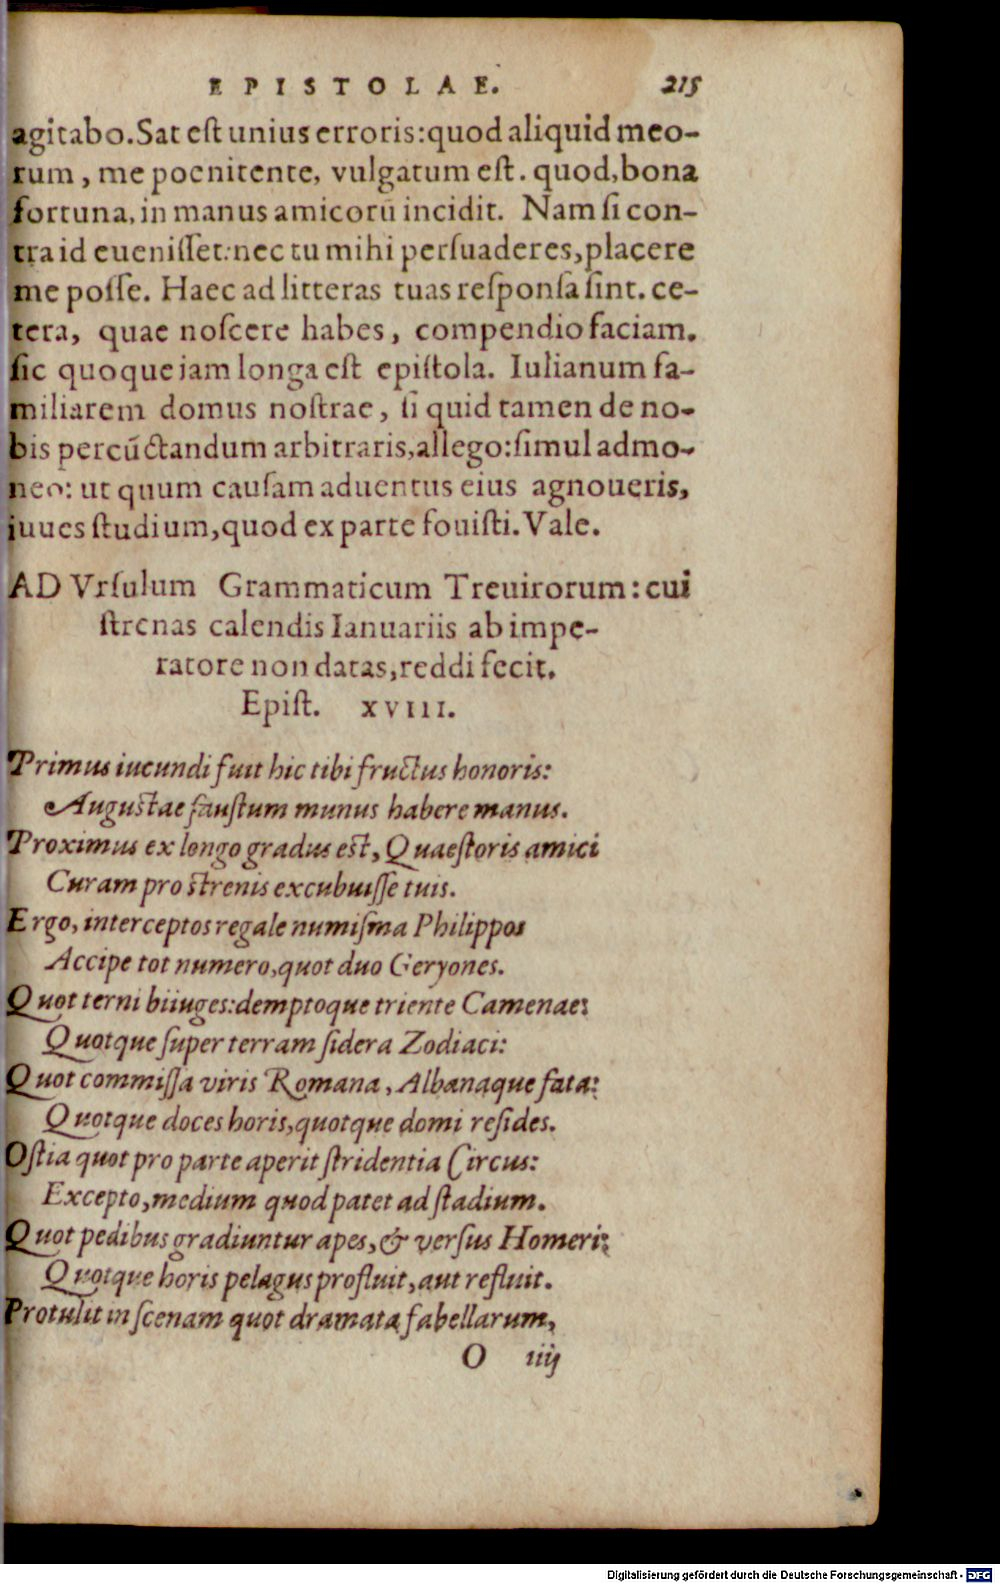 EPISTOLAE. 215
agitabo. Sat est unius erroris: quod aliquid meo-
rum, me poenitente, vulgatum est. quod, bona
fortuna, in manus amicorū incidit. Nam si con-
tra id euenisset: nec tu mihi persuaderes, placere
me posse. Haec ad litteras tuas responsa sint. ce-
tera, quae noscere habes, compendio faciam.
sic quoque iam longa est epistola. Iulianum fa-
miliarem domus nostrae, si quid tamen de no-
bis percūctandum arbitraris, allego: simul admo-
neo: ut quum causam aduentus eius agnoueris,
iuues studium, quod ex parte fouisti. Vale.
AD Vrsulum Grammaticum Treuirorum: cui
strenas calendis Ianuariis ab impe-
ratore non datas, reddi fecit.
Epist. XVIII.
Primus iucundi fuit hic tibi fructus honoris:
Augustae faustum munus habere manus.
Proximus ex longo gradus est, Quaestoris amici
Curam pro strenis excubuisse tuis.
Ergo, interceptos regale numisma Philippos
Accipe tot numero, quot duo Geryones.
Quot terni biiuges: demptoque triente Camenae:
Quotque super terram sidera Zodiaci:
Quot commissa viris Romana, Albanaque fata:
Quotque doces horis, quotque domi resides.
Ostia quot pro parte aperit stridentia Circus:
Excepto, medium quod patet ad stadium.
Quot pedibus gradiuntur apes, & versus Homeri:
Quotque horis pelagus profluit, aut refluit.
Protulit in scenam quot dramata fabellarum,
O iiij
Digitalisierung gefördert durch die Deutsche Forschungsgemeinschaft - DFG